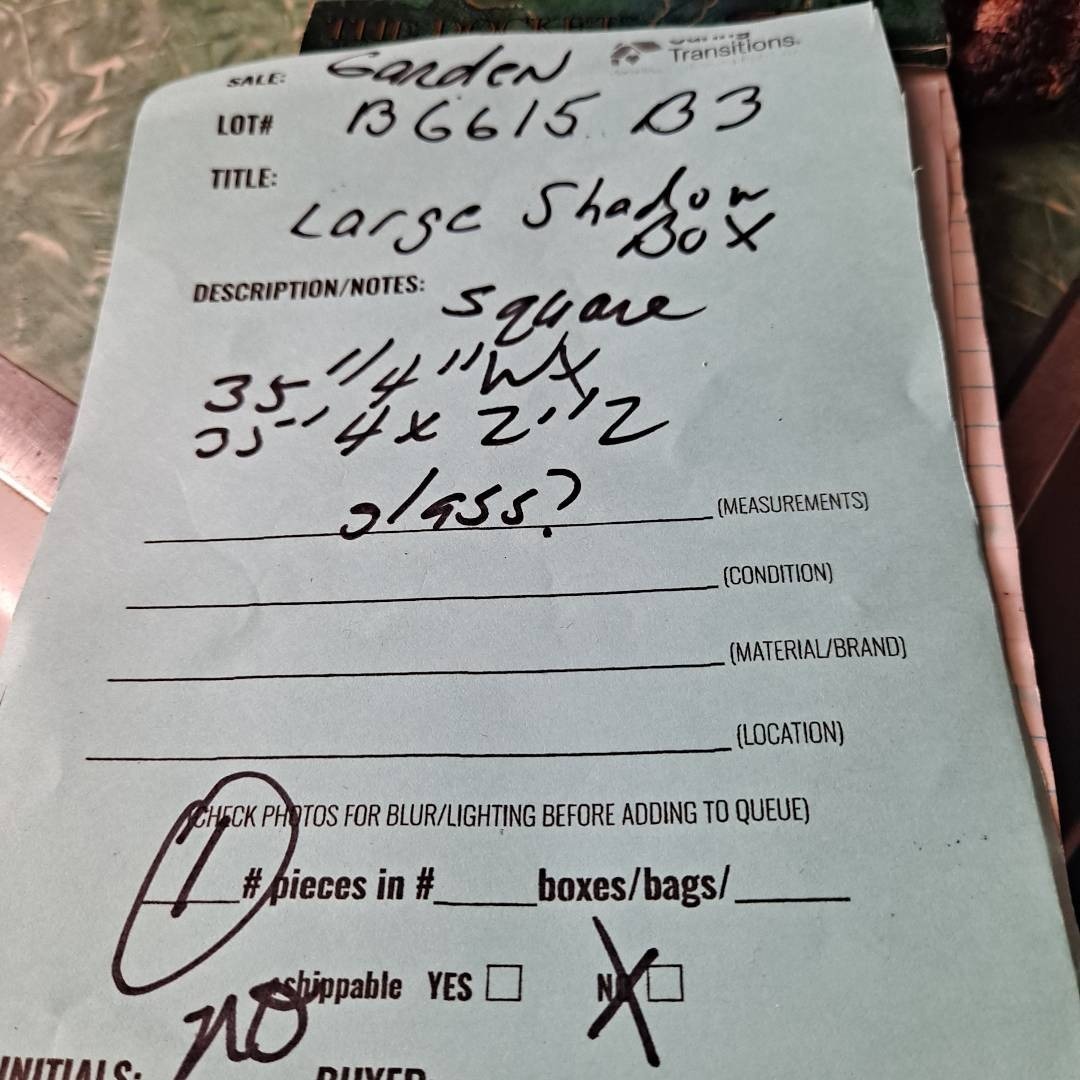 THE POCKET
Caring
SALE: Garden Transitions.
LOT# B6615 B3
TITLE:
Large Shadow
Box
DESCRIPTION/NOTES: Square
35"1/4" W X
35"1/4 X 2"1/2
glass? (MEASUREMENTS)
(CONDITION)
(MATERIAL/BRAND)
(LOCATION)
(CHECK PHOTOS FOR BLUR/LIGHTING BEFORE ADDING TO QUEUE)
1 # pieces in # boxes/bags/
shippable YES NO X
no
INITIALS: BUYER